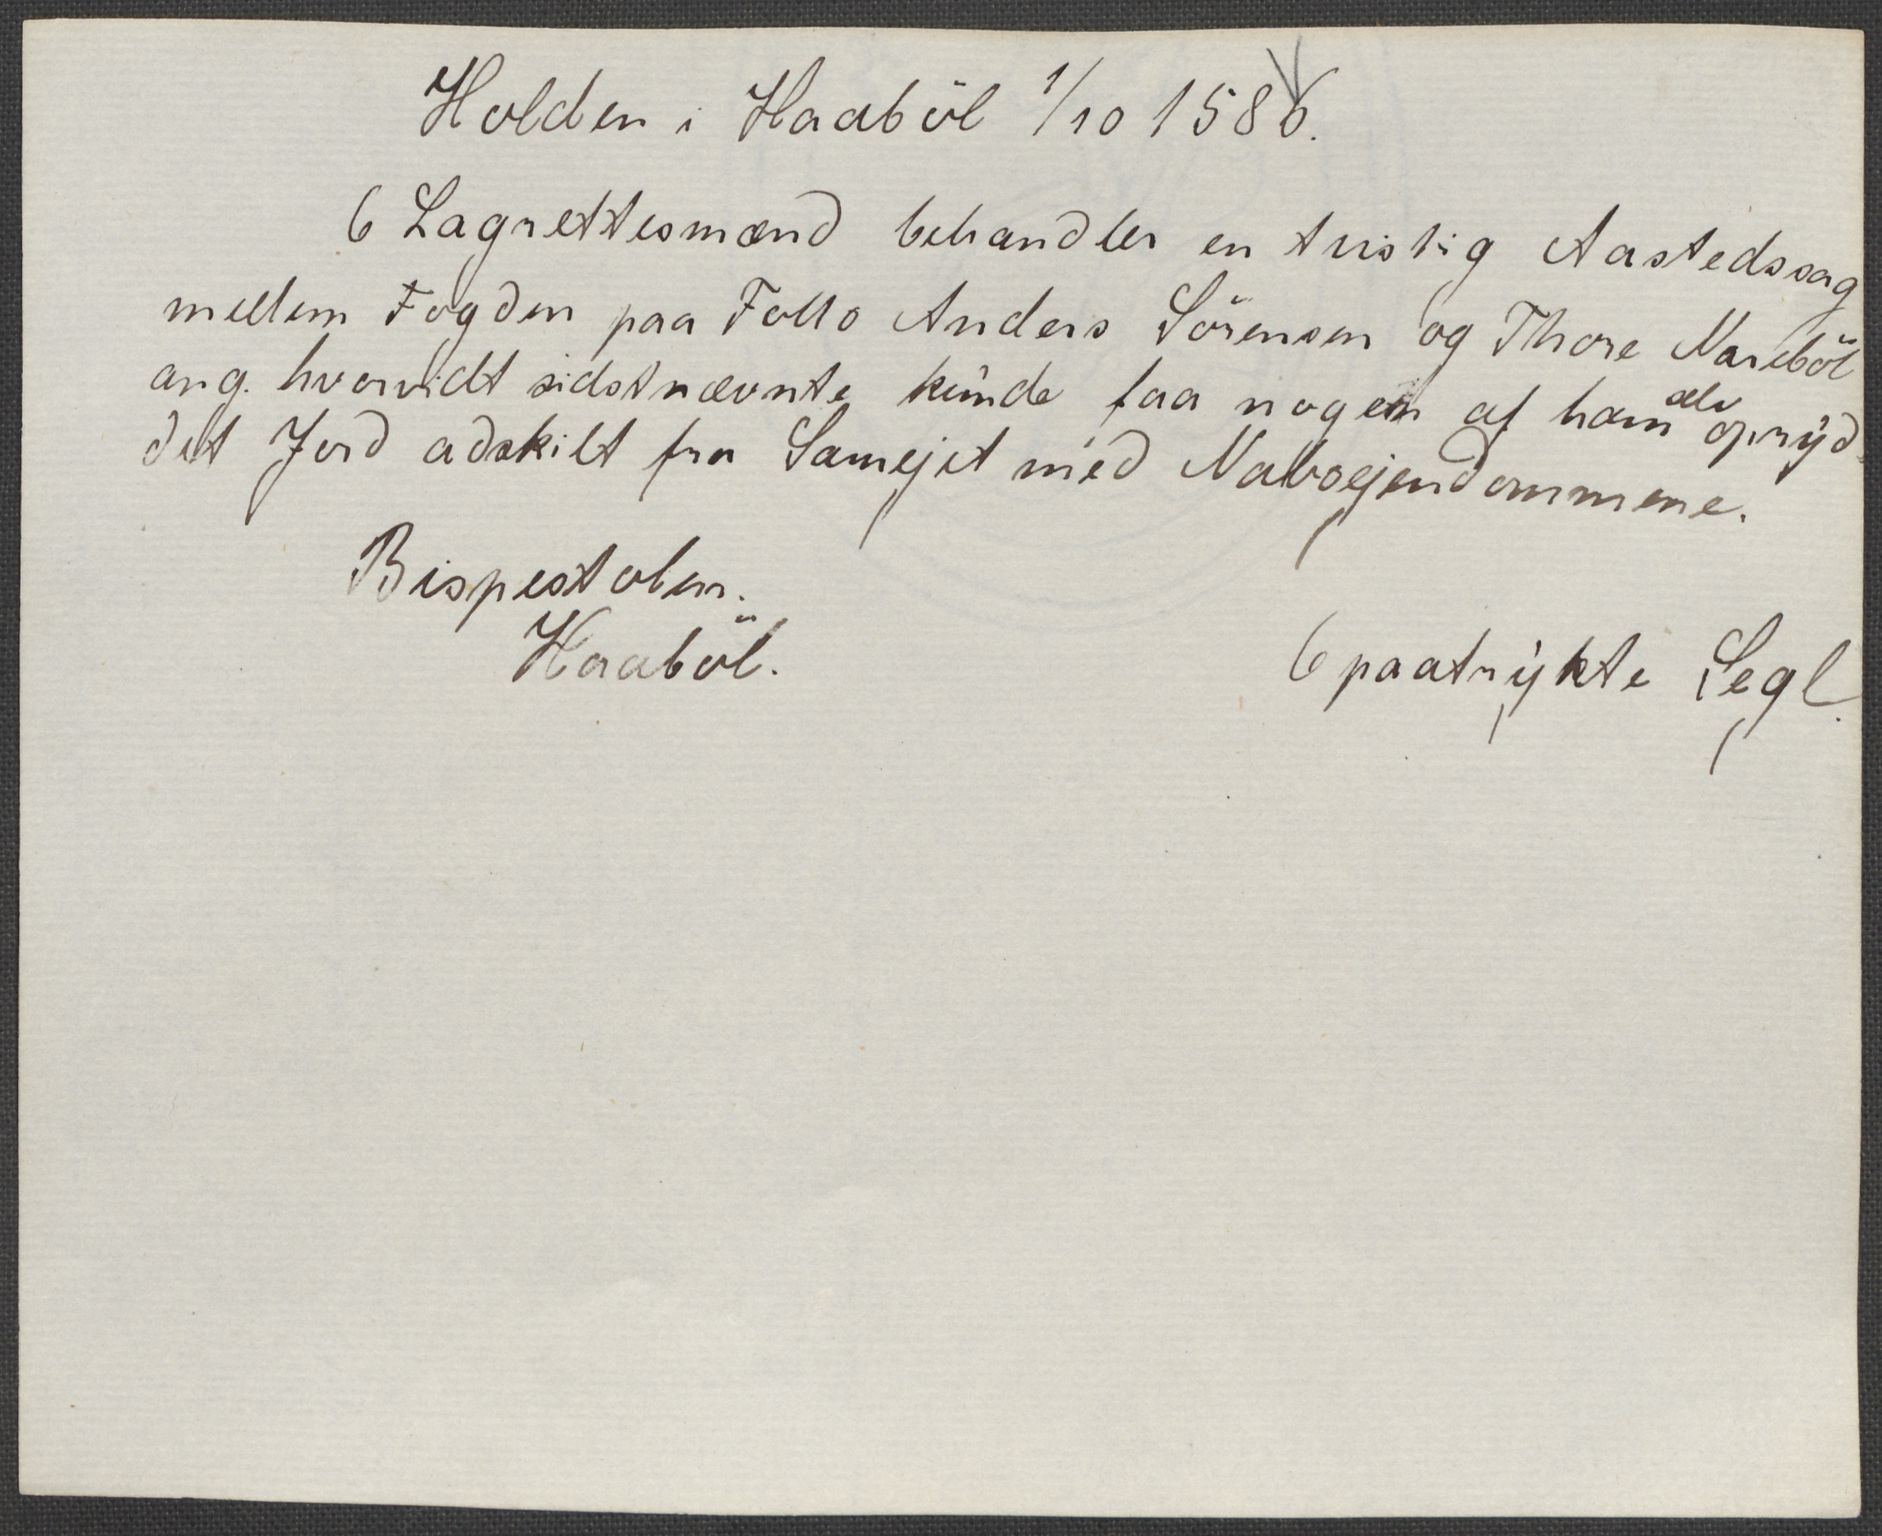 Holden i Haaböl 1/10 1586.
6 Lagrettesmænd behandler en tvistig Aastedssag
mellem Fogden paa Follo Anders Sörensen og Thore Nareböl
ang. hvorvidt sidstnævnte kunde faa nogen af ham selv opryd-
det Jord adskilt fra Samejet med Naboejendommene.
Bispestolen.
Haaböl.
6 paatrykte Segl.